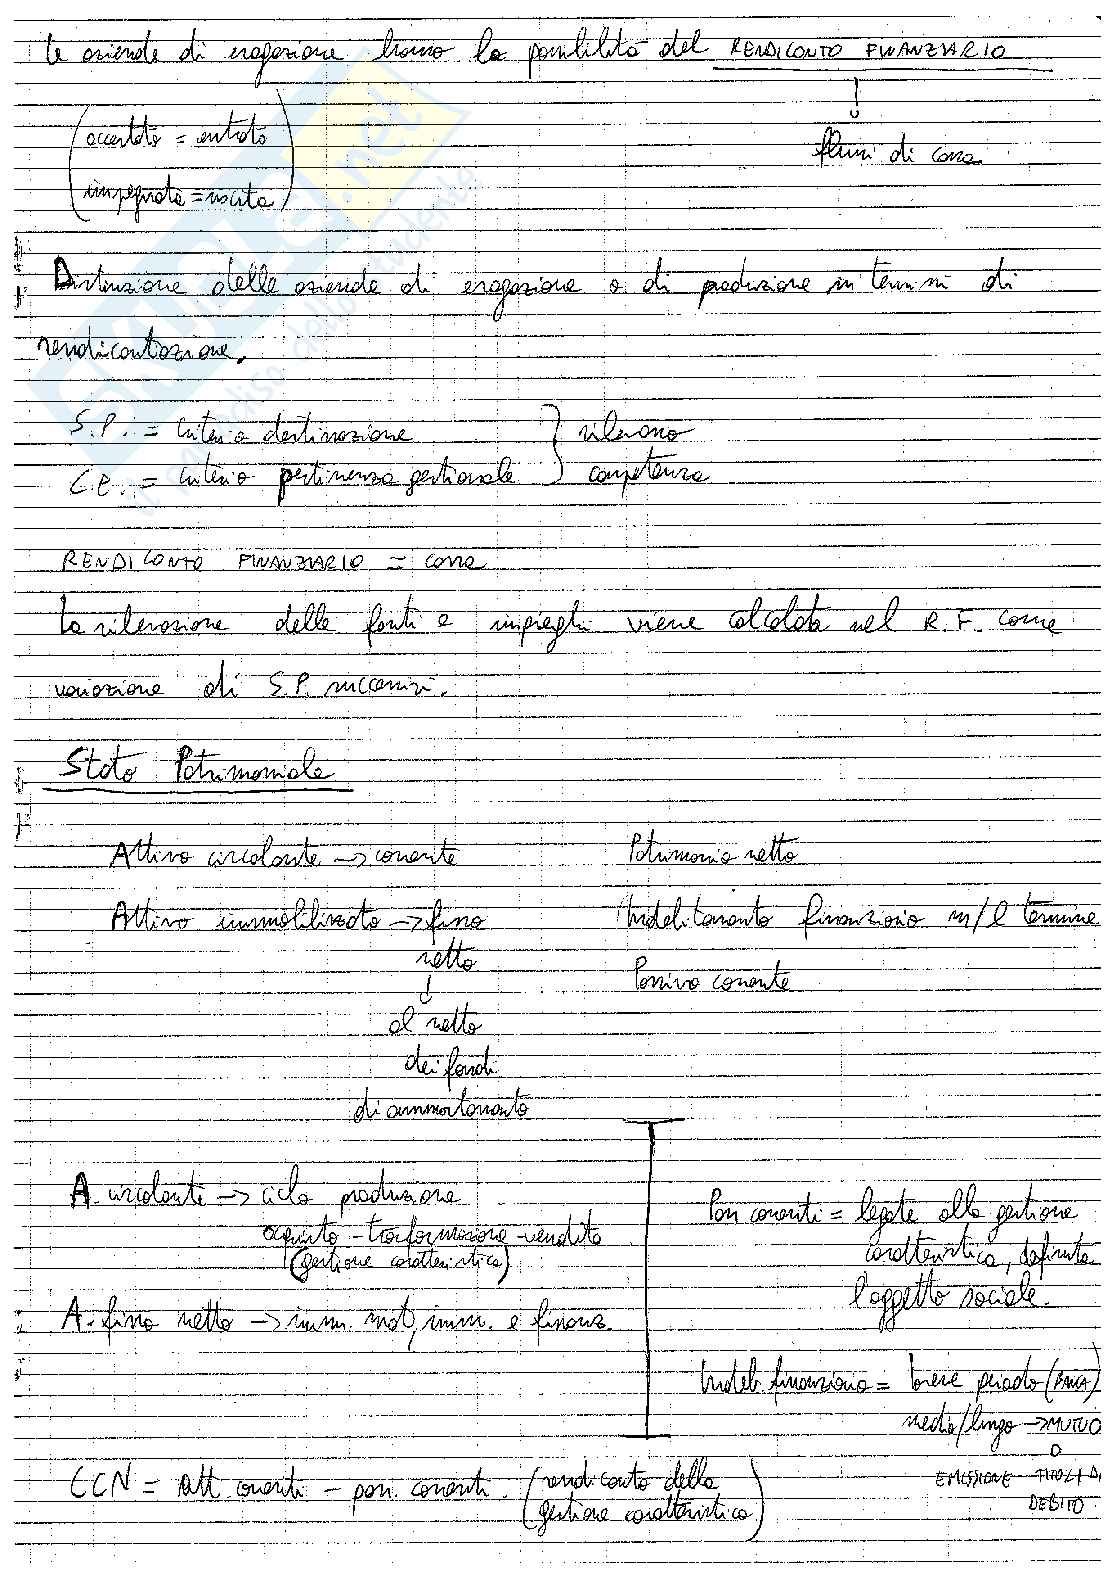 Le aziende di erogazione hanno la possibilità del RENDICONTO FINANZIARIO
(accertata = entrata
impegnata = uscita)
flussi di cassa
Distinzione delle aziende di erogazione o di produzione in termini di
rendicontazione.
S.P. = criterio destinazione
C.E. = criterio pertinenza gestionale
} rilevano
competenza
RENDICONTO FINANZIARIO = cassa
La rilevazione delle fonti e impieghi viene calcolata nel R.F. come
variazione di S.P. successivi.
Stato Patrimoniale
Attivo circolante → corrente
Patrimonio netto
Attivo immobilizzato → fisso
netto
↓
al netto
dei fondi
di ammortamento
Indebitamento finanziario m/l termine
Passivo corrente
A. circolante → ciclo produzione
acquisto - trasformazione - vendita
(gestione caratteristica)
A. fisso netto → imm. mat, imm. e finanz.
Pass correnti = legate alla gestione
caratteristica, definita
l'oggetto sociale.
Indeb. finanziario = breve periodo (BANCA)
medio/lungo → MUTUO
O
EMISSIONE TITOLI DI
DEBITO
CCN = att. correnti - pass. correnti. (rendiconto della
gestione caratteristica)
SKUOLA.net
il paradiso dello studente